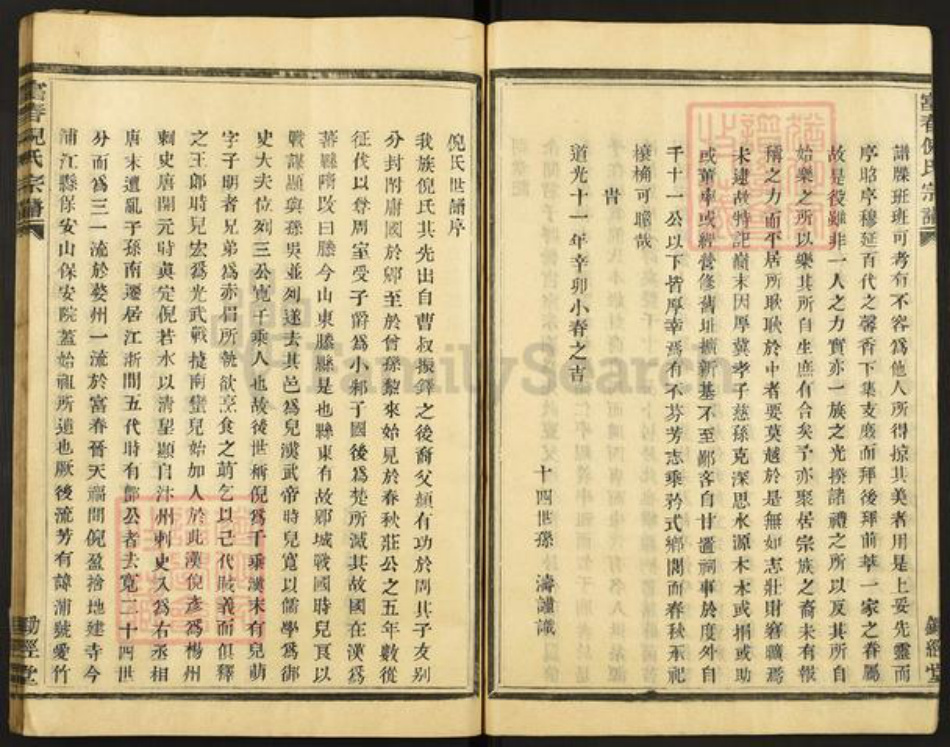 譜牒班班可考有不容爲他人所得掠其美者用是上妥先靈而
序昭序穆延百代之馨香下集支庶而拜後拜前萃一家之眷屬
故是役雖非一人之力實亦一族之光揆諸禮之所以反其所自
始樂之所以樂其所自生庶有合矣予亦聚居宗族之裔未有報
稱之力而平居所耿耿於中者要莫越於是無如志壯財窘曠焉
未逮故特記巔末因厚冀孝子慈孫克深思水源木本或捐或助
或董率或經營修舊址擴新基不至鄙吝自甘置祠事於度外自
千十一公以下皆厚幸焉有不芬芳志乘矜式鄉閭而春秋承祀
榱桷可瞻哉
旹
道光十一年辛卯小春之吉
十四世孫 濤謹識
倪氏世譜序
我族倪氏其先出自曹叔振鐸之後裔父顏有功於周其子友別
分封附庸國於郳至於曾孫黎來始見於春秋莊公之五年數從
征伐以尊周室受子爵爲小邾子國後爲楚所滅其故國在漢爲
蕃縣隋改曰滕今山東滕縣是也縣東有故郳城戰國時兒良以
戰謀顯與孫吳並列遂去其邑爲兒漢武帝時兒寬以儒學爲御
史大夫位列三公寬千乘人也故後世稱倪爲千乘漢末有兒萌
字子明者兄弟爲赤眉所執欲烹食之萌乞以己代賊義而俱釋
之王郎時兒宏爲光武戰擾南蠻兒始加人於此漢倪彥爲楊州
刺史唐開元時眞定倪若水以清望顯自汴州刺史入爲右丞相
唐末遭亂子孫南遷居江浙間五代時有鄮公者去寬二十四世
分而爲三一流於婺州一流於富春晉天福間倪盈捨地建寺今
浦江縣保安山保安院蓋始祖所遺也厥後流芳有諱浦號愛竹
富春倪氏宗譜
鋤經堂
富春倪氏宗譜
鋤經堂
FamilySearch